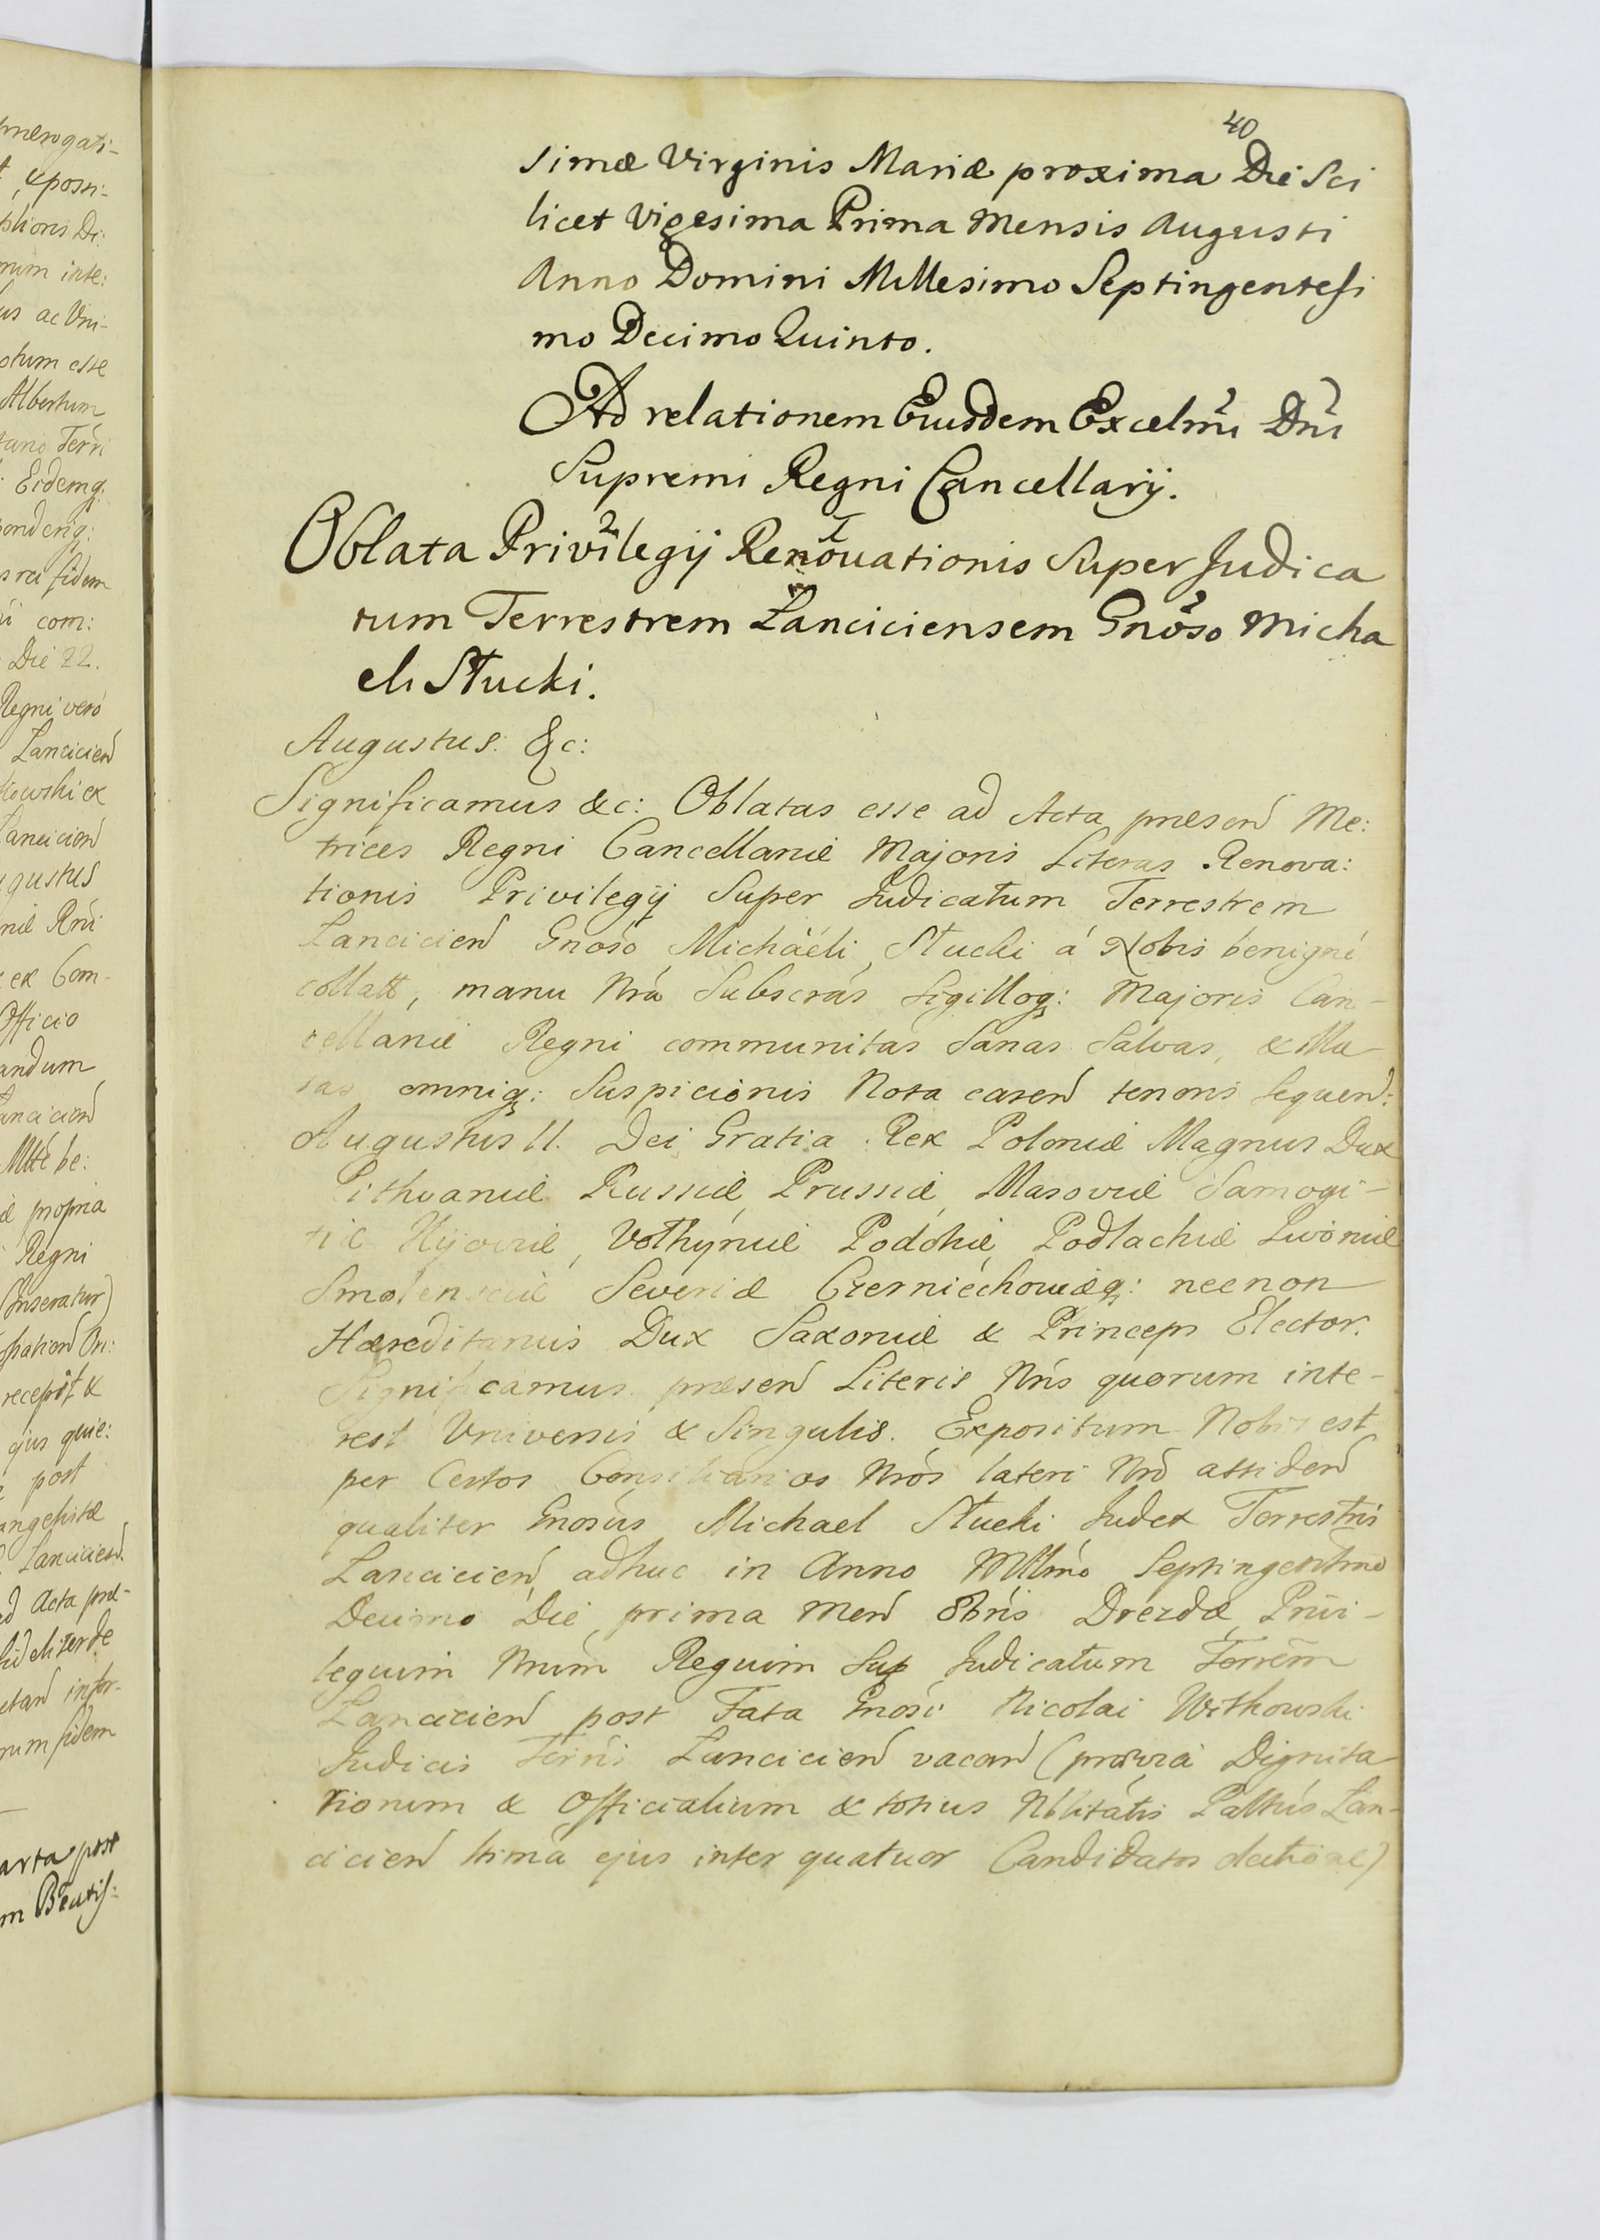 merogati-
t, & possi-
ptionis De:
num inte:
us ac Uni-
otum esse
Albertum
tanó Terri
Eidemq:
pondenq:
s rei fidem
ũ com:
Die 22.
Regni veró
Lancicien
kowski ex
Lancicien
ugustus
niæ Rñi
ex Com-
Officio
andum
ancicien
Mtté be:
æ propria
Regni
(Inseratur)
Ori:
recepit &
ejus quie:
post
angelistæ
Lancicien
d Acta præ-
fideliter de
infor-
rum fidem
arta post
m Beatis:
40
simæ Virginis Mariæ proxima Die Sci
licet Vigesima Prima Mensis Augusti
Anno Domini Millesimo Septingentesi
mo Decimo Quinto.
Ad relationem Eiusdem Excelmi Dni
Supremi Regni Cancellarij.
Oblata Privilegij Renouationis Super Judica
tum Terrestrem Lanciciensem Gnoso Micha
eli Stucki.
Augustus &c:
Significamus &c: Oblatas esse ad Acta præsen Me:
trices Regni Cancellariæ Majoris Literas Renova:
tionis Privilegij Super Judicatum Terrestrem
Lancicien Gnoso Michaéli Stucki á Nobis benigné
collatt, manu Nrá Subscrás Sigilloq: Majoris Can-
cellariæ Regni communitas Sanas Salvas, & Illæ-
sas omniq: Suspicionis Nota caren tenoris Sequen:
Augustus II. Dei Gratia Rex Poloniæ Magnus Dux
Lithvaniæ Russiæ, Prussiæ, Masoviæ Samogi-
tiæ Kijoviæ, Volhyniæ Podoliæ, Podlachiæ Livoniæ
Smolensciæ Severiæ Czerniéchoviæq: necnon
Hæreditarius Dux Saxoniæ & Princeps Elector.
Significamus præsen Literis Nris quorum inte-
rest Universis & Singulis. Expositum Nobis est
per Certos Consiliarios Nros lateri Nro assiden
qualiter Gnosus Michael Stucki Judex Terrestris
Lancicien adhuc in Anno Mllmo Septingentmo
Decimo Die prima Men 8bris Drezdæ Privi-
legium Nrum Regium Sup Judicatum Terrem
Lancicien post Fata Gnosi Nicolai Witkowski
Judicis Terris Lancicien vacan (prævia Dignita-
riorum & Officialium & totius Nblitatis Palttus Lan-
cicien ltima ejus inter quatuor Candidatos electione)